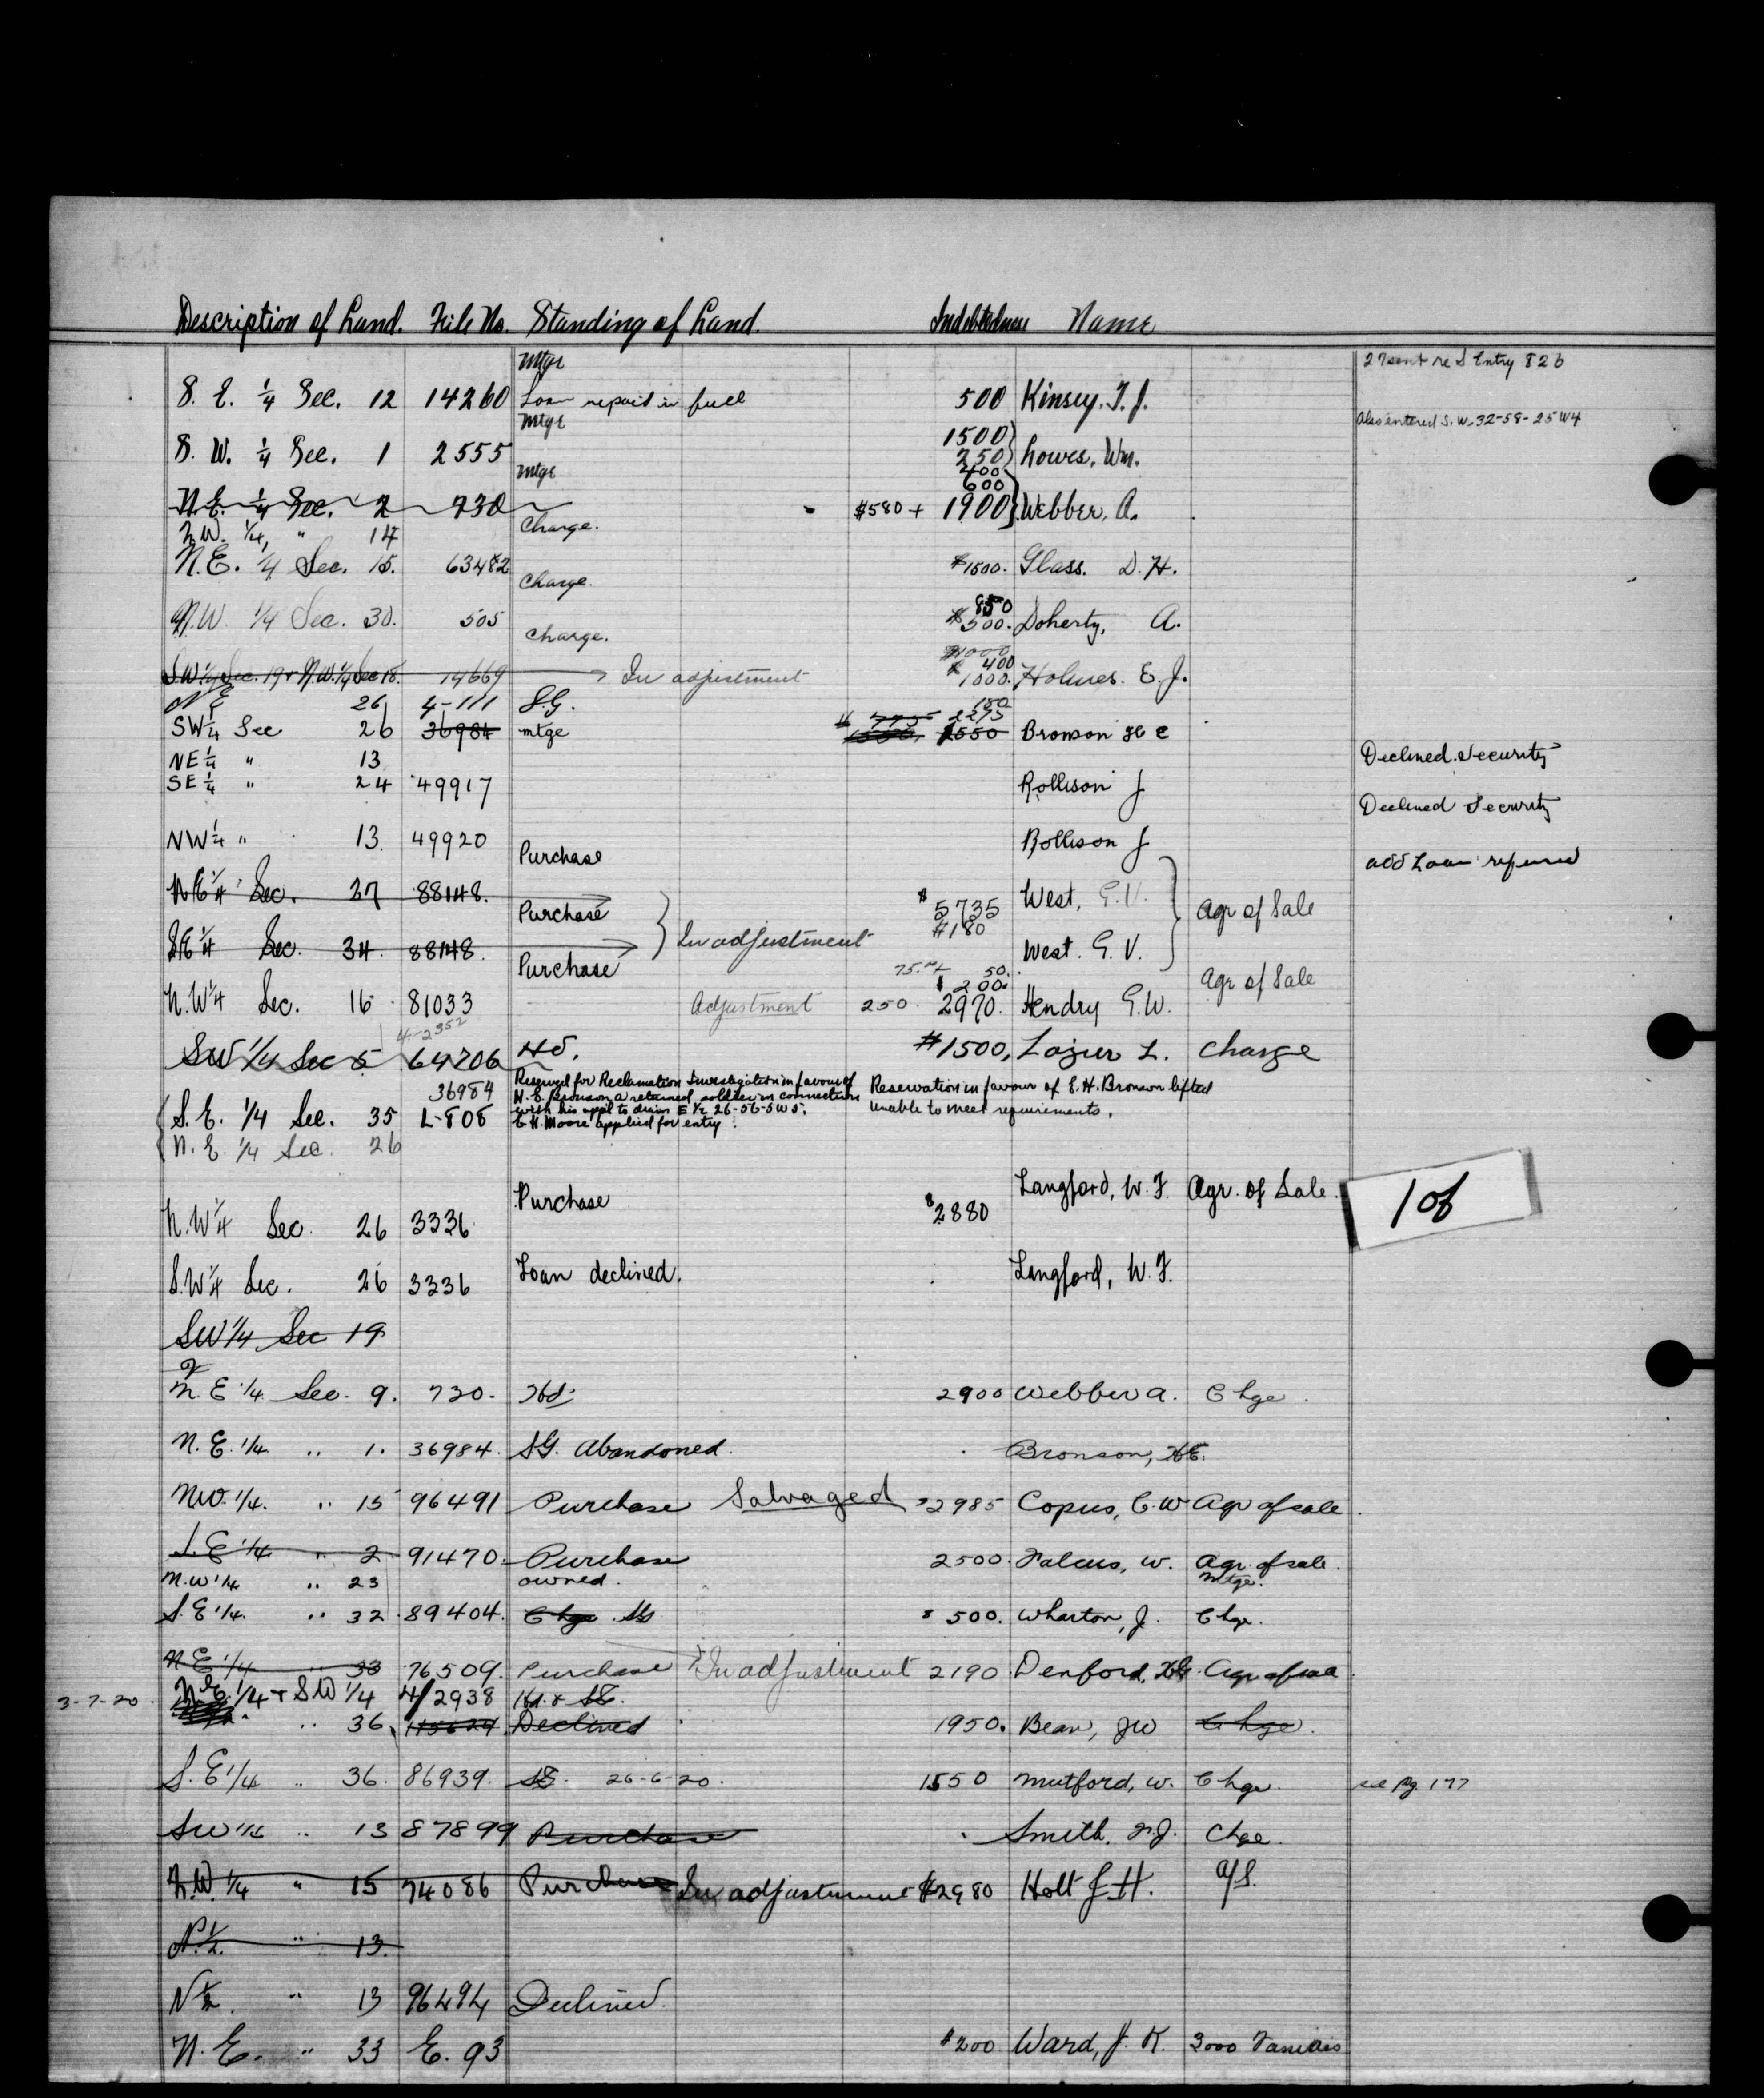 Description of Land. File No. Standing of Land. Indebtedness Name
Mtge 27 sent re S Entry 826
S. E. 1/4 Sec. 12 14260 Loan repaid in full 500 Kinsey. T. J.
Mtge Also entered S.W. 32-58-25 W4
S. W. 1/4 Sec. 1 2555 1500 250 Lowes, Wm.
Mtge 400 600
N.E. 1/4 Sec. 2 730 $580 + 1900 Webber, A.
N.W. 1/4, " 14 Charge.
N.E. 1/4 Sec. 15. 63482 $1500. Glass. D. H.
Charge.
850
N.W. 1/4 Sec. 30. 505 $500. Doherty, A.
Charge.
$1000 400
S.W 1/4 Sec. 19 + N.W. 1/4 Sec 18. 14669 In adjustment 1000. Holmes. E. J.
N E 26 4-111 S.G. 150
SW 1/4 Sec 26 36984 mtge 775 2275 2550 Bronson H E
NE 1/4 " 13 Declined Security
SE 1/4 " 24 49917 Rollison J
Declined Security
NW 1/4 " 13. 49920 Rollison J
Purchase add Loan refused
N E 1/4 Sec. 27 88148. $5735 West, G.V.
Purchase In adjustment $180 Agr of Sale
S E 1/4 Sec. 34. 88148. West. G. V.
Purchase 75. 50. 200. Agr of Sale
N.W 1/4 Sec. 16 81033 Adjustment 250. 2970. Hendry G.W.
4-2352
SW 1/4 Sec 5 64706 Hd. $1500, Lozier L. Charge
36984 Reserved for Reclamation Investigation in favour of Reservation in favour of E. H. Bronson lifted
H. E. Bronson a returned soldier in connection
S. E. 1/4 Sec. 35 L-808 with his appl to drain E 1/2 26-56-5 W 5. unable to meet requirements.
E H. Moore applied for entry.
N. E. 1/4 Sec. 26
Purchase Langford, W. F. Agr. of Sale.
1 of
N.W 1/4 Sec. 26 3336 $2880
S.W 1/4 Sec. 26 3336 Loan declined. Langford, W. F.
SW 1/4 Sec 19
N. E 1/4. Sec. 9. 730. Hd. 2900 Webber A. Chge.
N. E. 1/4. " 1. 36984. SG. Abandoned. Bronson, H.E.
NW. 1/4. " 15 96491 Purchase Salvaged $2985 Copus, C. W Agr of sale.
S. E 1/4 " 2 91470. Purchase 2500. Falcus, W. Agr. of sale.
N.W 1/4 " 23 owned. Mtge.
S. E 1/4. " 32 89404. Chge SG $500. Wharton, J. Chge.
N E 1/4 " 33 76509. Purchase In adjustment 2190 Denford, H.G. Agr of sale.
3-7-20. N.E. 1/4 + S W 1/4 4/2938 Hd. & SG.
" 36. Declined 1950. Bean, J W Chge.
S. E 1/4 " 36. 86939. SG. 26-6-20. 1550 Mutford, W. Chge. see pg. 177
SW 1/4 " 13 87899 Purchase Smith, F.J. Chge.
N.W. 1/4 " 15 74086 Purchase In adjustment $2980 Holt J. H. A/S.
N. 1/2. " 13.
N 1/2. " 13 96494 Declined.
N. E. " 33 E. 93 $200 Ward, J. K. 3000 Families